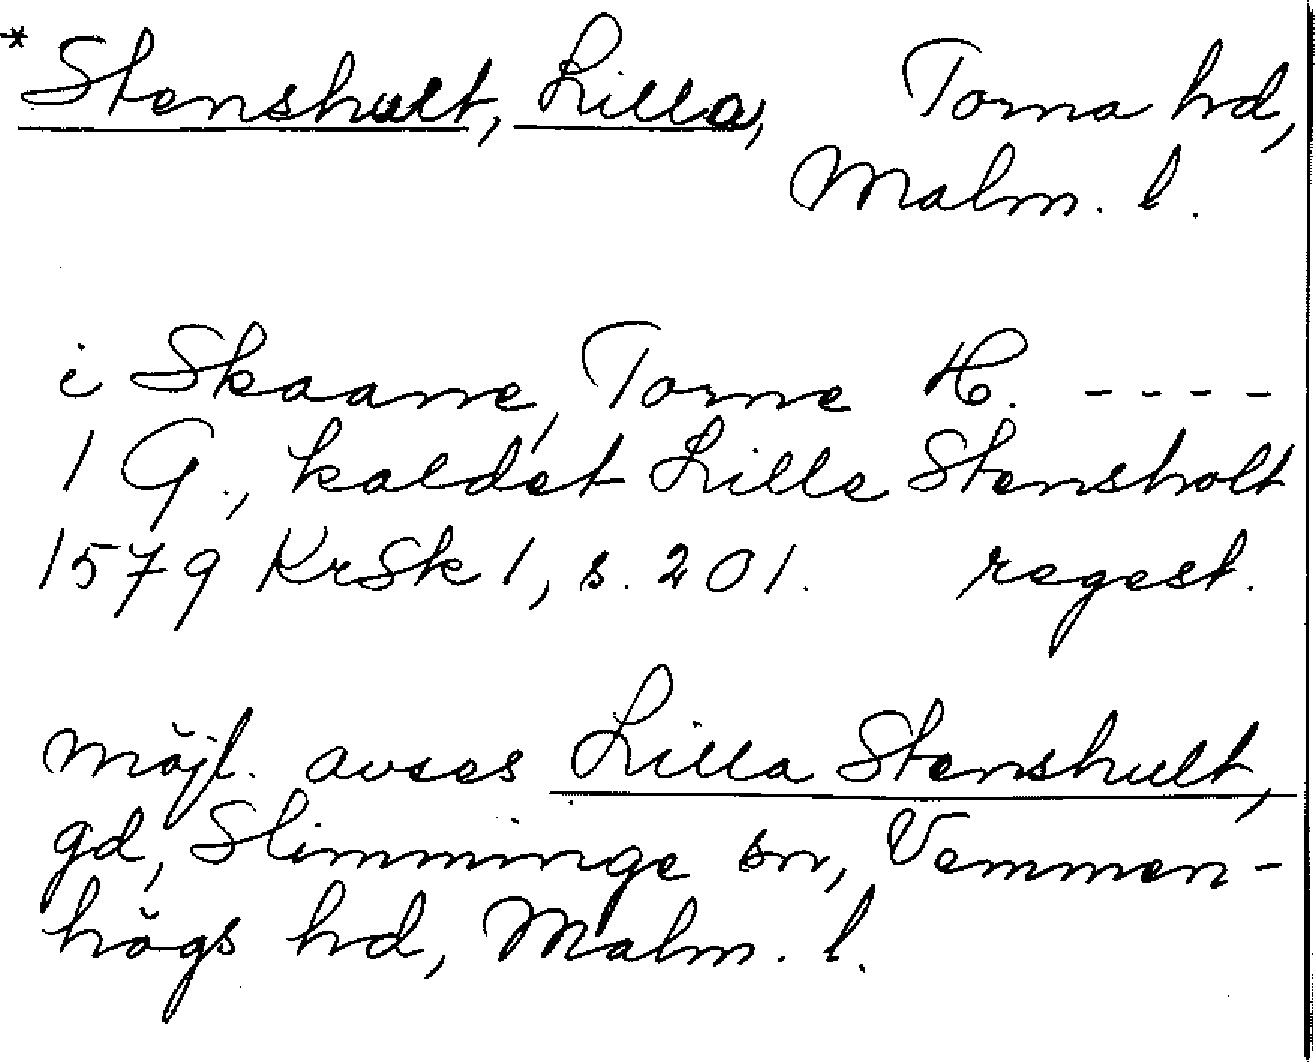 * Stenshult, Lilla, Torna hd,
Malm. l.
i Skaane, Torne H. ----
1 G., kaldet Lille Stensholt
1579 KrSk 1, s. 201. regest.
möjl. avses Lilla Stenshult,
gd, Slimminge sn, Vemmen-
högs hd, Malm. l.